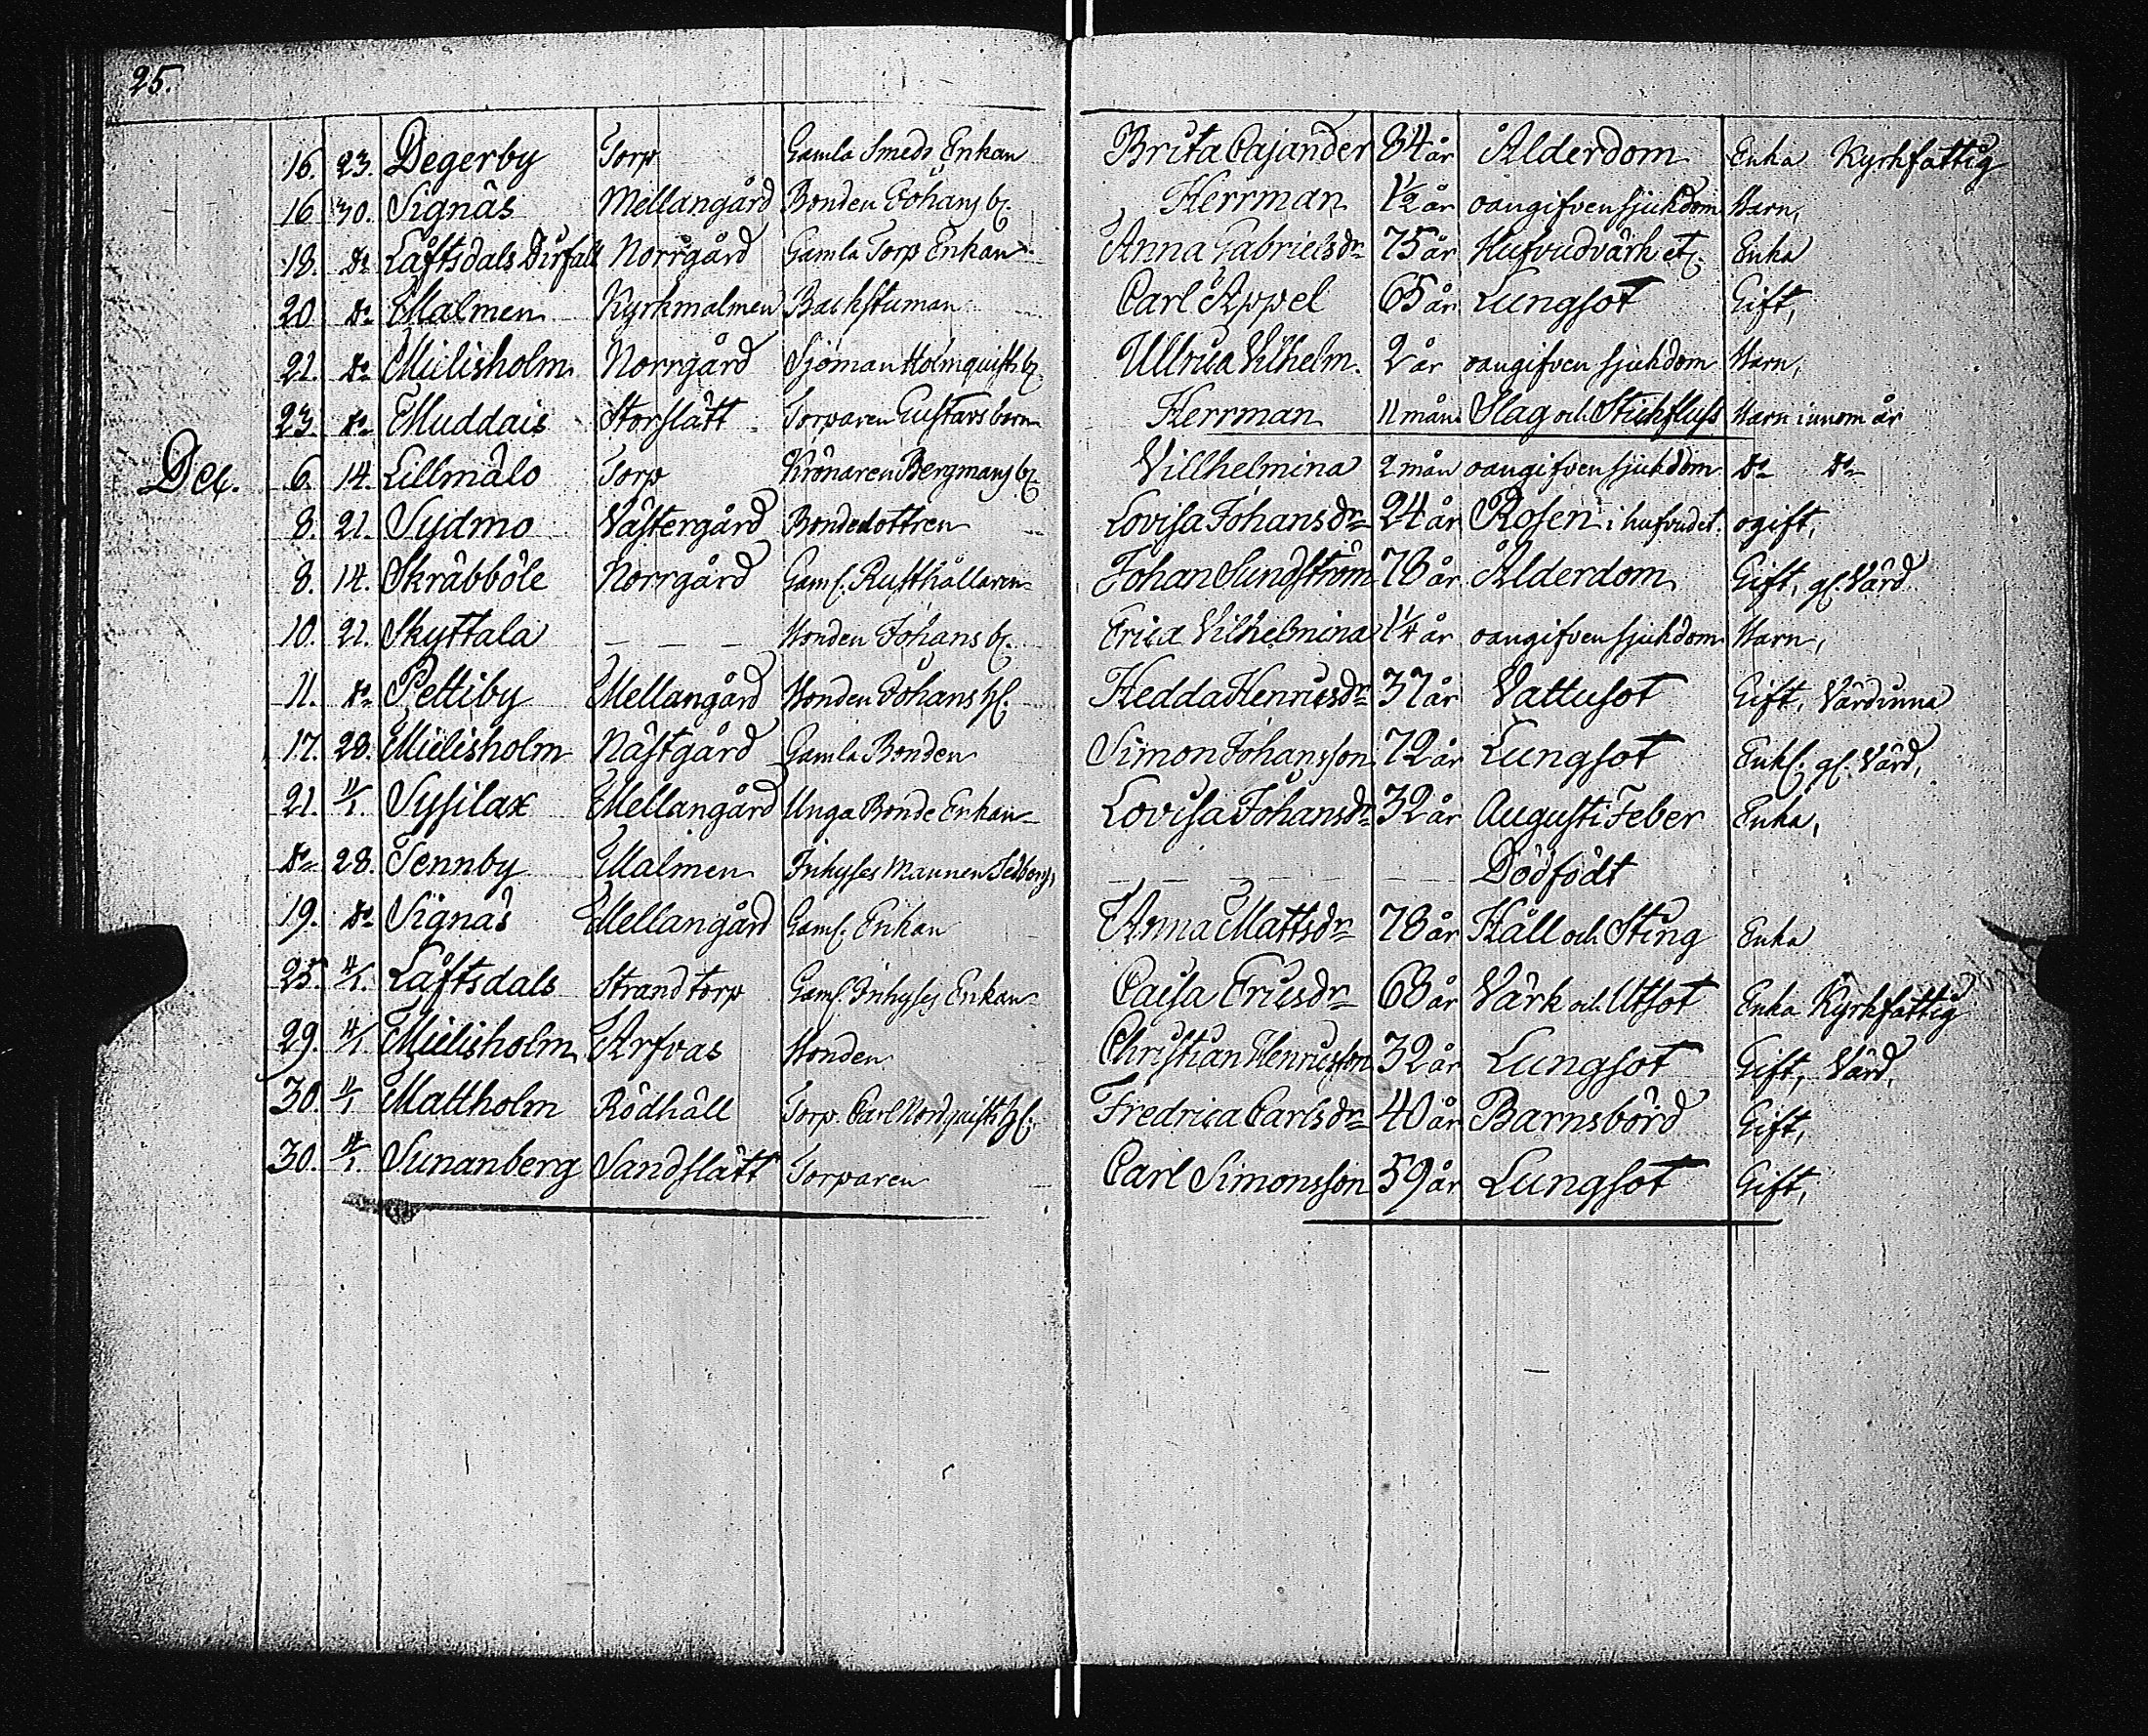 25.
16. 23. Degerby Torp Gamla Smeds Enkan Brita Cajander 84 år Ålderdom Enka Kyrkfattig
16 30. Signäs Mellangård Bonden Johans b. Herrman 1½ år oangifven sjukdom Barn,
18. do Låftsdals Norrgård Gamla Torp Enkan Anna Gabrielsdr 75 år Hufvudvärk etc. Enka
20 do Malmen Kyrkmalmen Backstuman Carl Appel 65 år Lungsot Gift,
21. do Mielisholm Norrgård Sjöman Holmquists b. Ullrica Vilhelm. 2 år oangifven sjukdom Barn,
23. do Muddais Storslätt Torparen Gustavs barn Herrman 11 mån Slag och Stickfluss Barn innom år
Dec. 6. 14. Lillmälo Torp Krönaren Bergmans b. Villhelmina 2 mån oangifven sjukdom do do
8. 21. Sydmo Västergård Bondedottren Lovisa Johansdr 24 år Rosen i hufvudet. ogift,
8. 14. Skräbböle Norrgård Gaml. Rusthållaren Johan Sundström 78 år Ålderdom Gift, gl. Värd
10. 21. Skyttala — — — Bonden Johans b. Erica Vilhelmina 1¼ år oangifven sjukdom Barn,
11. do Pettiby Mellangård Bonden Johans h. Hedda Henricsdr 37 år Vattusot Gift, Värdinna
17. 28. Mielisholm Nästgård Gamla Bonden Simon Johansson 72 år Lungsot Enkl. gl. Värd,
21. 11/1. Sysilax Mellangård Unga Bonde Enkan Lovisa Johansdr 32 år Augusti Feber Enka,
do 28. Tennby Malmen Inhyses Mannen — — — Dödfödt
19. do Signäs Mellangård Gaml. Enkan Anna Mattsdr 78 år Håll och Sting Enka
25. 4/1. Låftsdals Strandtorp Gaml. Inhyses Enkan Caisa Ericsdr 68 år Värk och Utsot Enka Kyrkfattig
29. 4/1 Mielisholm Arfvas Bonden Christian Henricsson 32 år Lungsot Gift, Värd,
30. 11/1 Mattholm Rödhäll Torp. Carl Nordquists h. Fredrica Carlsdr 40 år Barnsbörd Gift,
30. 4/1. Sunanberg Sandslätt Torparen Carl Simonsson 59 år Lungsot Gift,